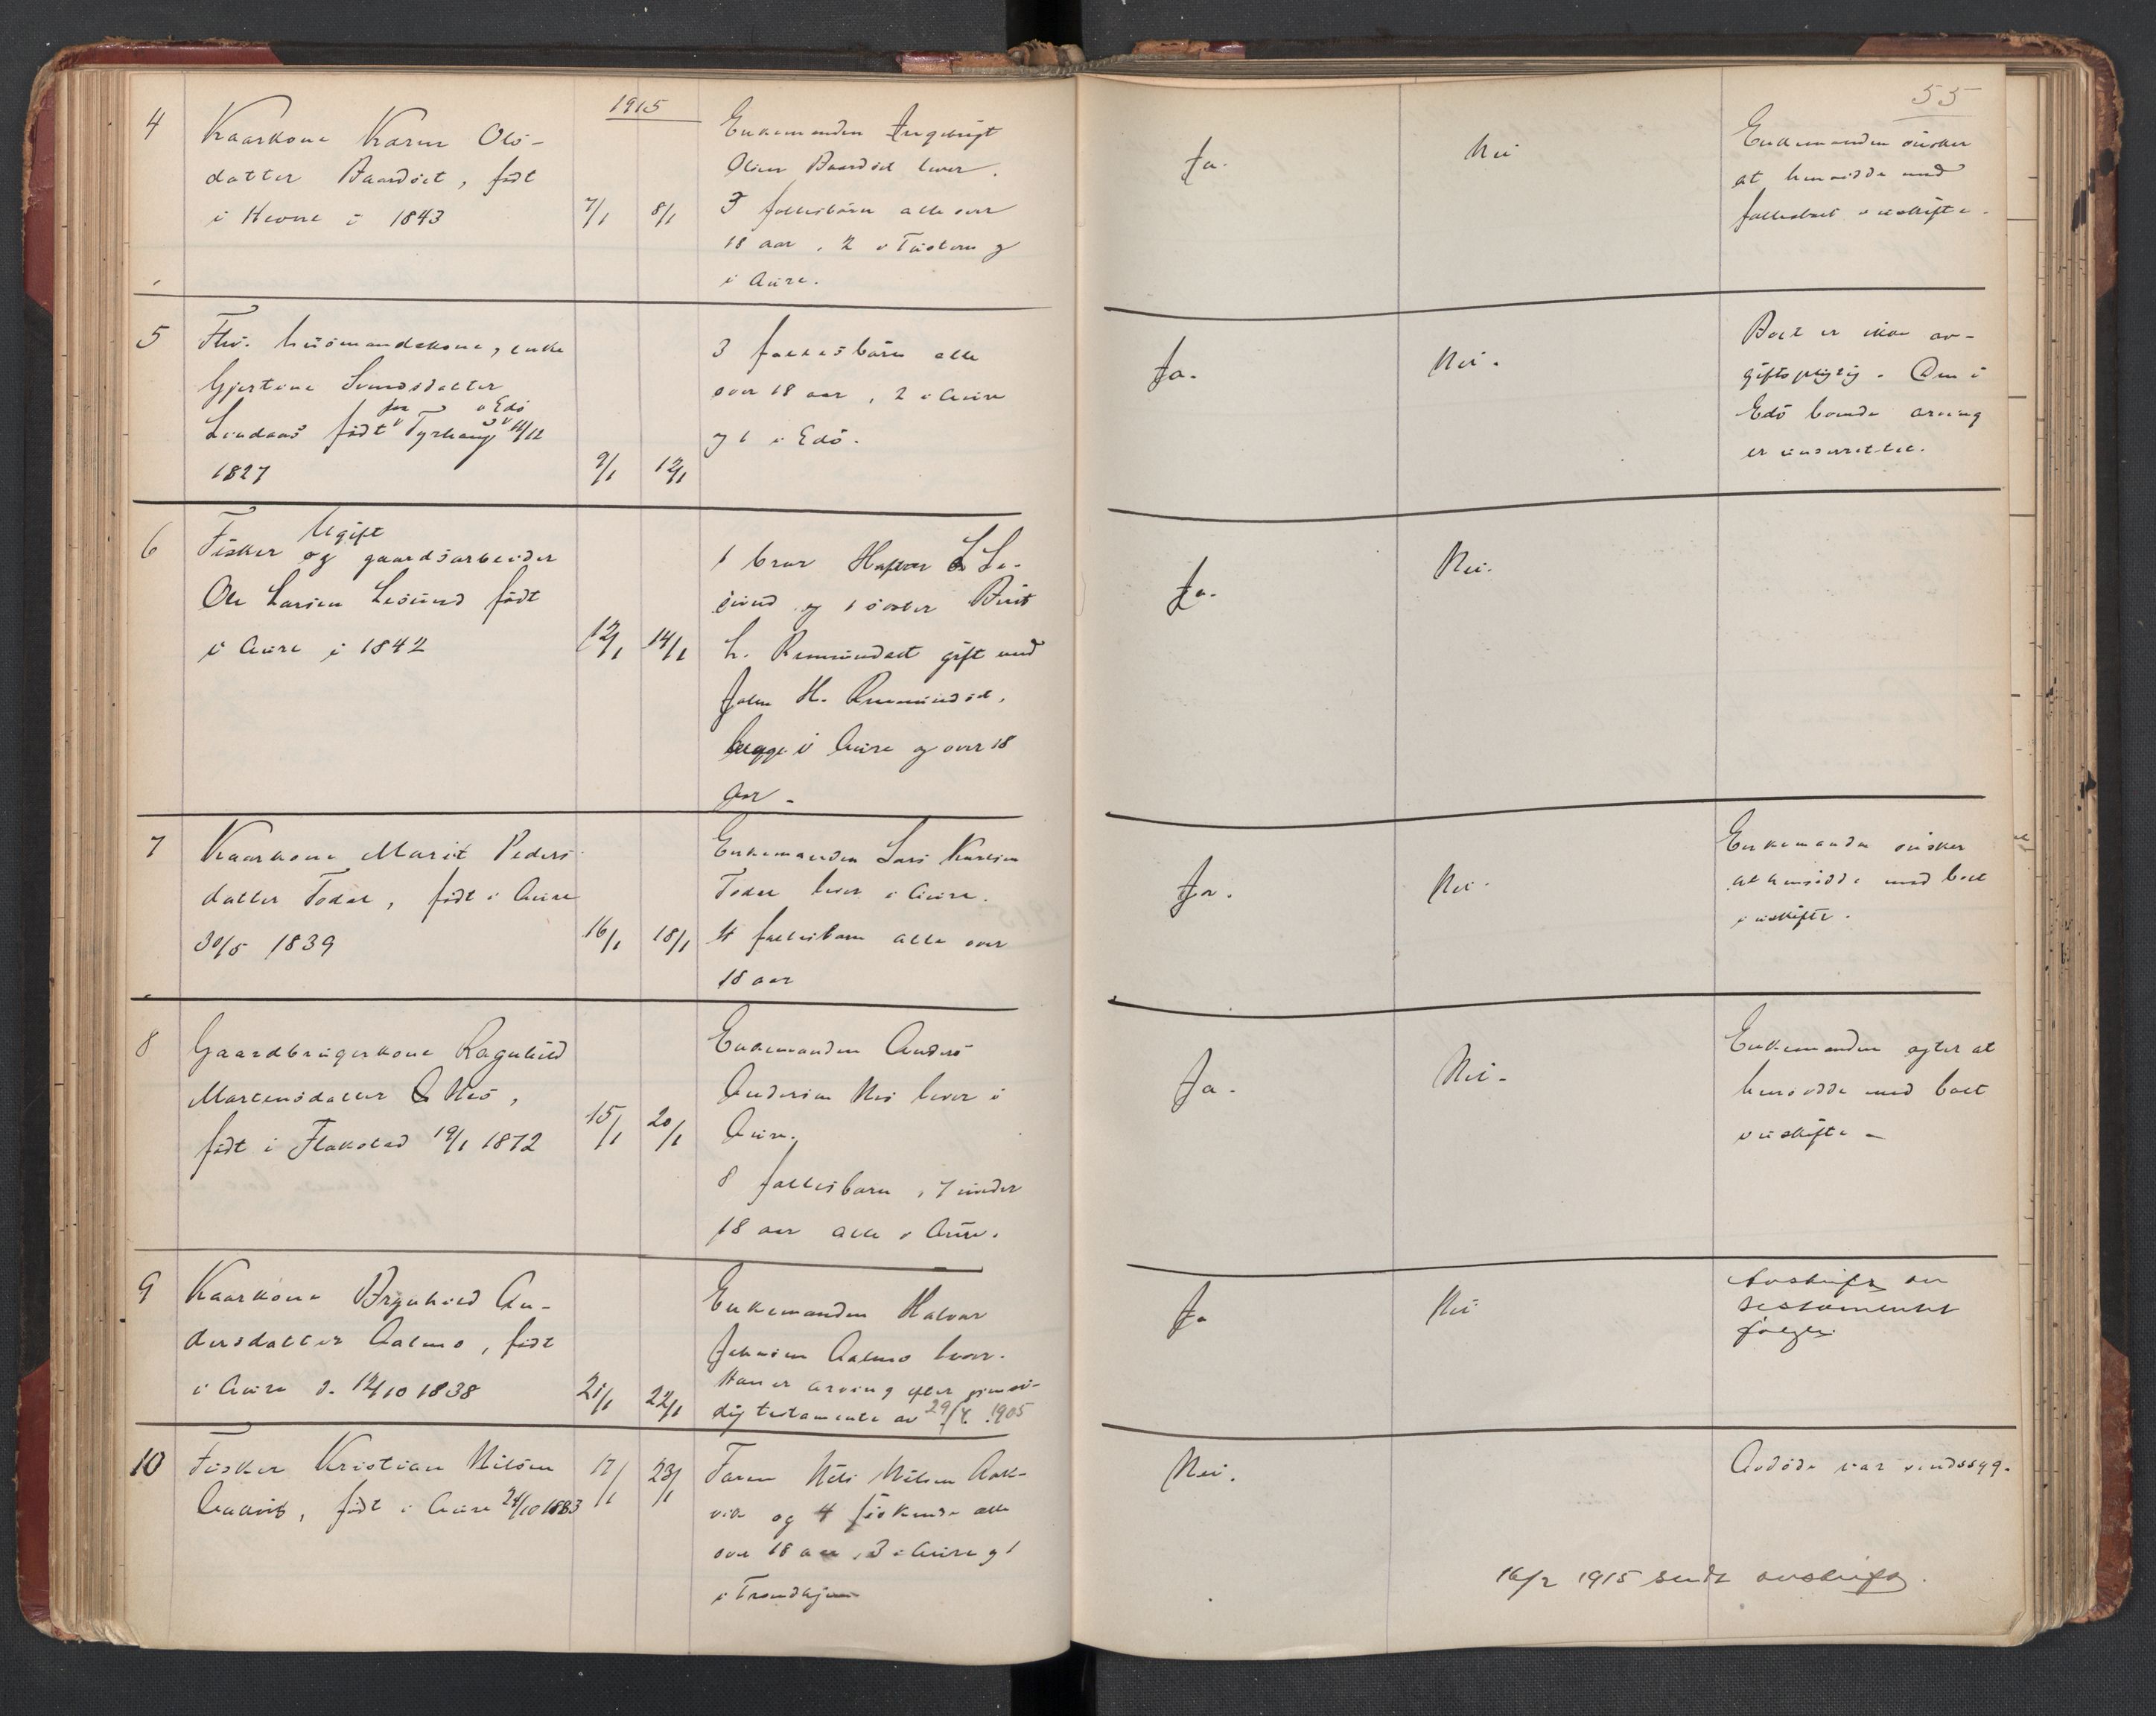 55
1915
4
Kaarkone Karen Ols-
datter Baardset, født
i Hevne i 1843
7/1 8/1
Enkemanden Ingebrigt
Olsen Baardset lever.
3 fællesbørn alle over
18 aar, 2 i Tustern og
i Aure.
Ja.
Nei
Enkemanden ønsker
at hensidde med
fællesboet i uskifte.
5
Fhv. husmandskone, enke
Gjertine
Lindaas født i Tyrhaug 12/12
1827
9/1 12/1
3 fællesbørn alle
over 18 aar, 2 i Aure
og 1 i Edø.
Ja.
Nei.
Boet er ikke av-
giftspligtig. Den i
Edø boende arving
er underrettet.
6
Ugift
Fisker og gaardsarbeider
Ole Larsen Lesund født
i Aure i 1842
12/1 14/1
1 bror L Le-
sund og 1 søster Berit
L. gift med
John H.
begge i Aure og over 18
aar.
Ja.
Nei.
7
Kaarkone Marit Peders
datter Todal, født i Aure
30/5 1839
16/1 18/1
Enkemanden Lars
Todal lever i Aure.
4 fællesbarn alle over
18 aar
Ja.
Nei.
Enkemanden ønsker
at hensidde med boet
i uskifte.
8
Gaardbrugerkone Ragnhild
Martensdatter Nes,
født i Flakstad 19/1 1872
15/1 20/1
Enkemanden Anders
Andersen Nes lever i
Aure.
8 fællesbarn, 7 under
18 aar alle i Aure.
Ja.
Nei.
Enkemanden agter at
hensidde med boet
i uskifte.
9
Kaarkone Brynhild An-
dersdatter Aalmo, født
i Aure d. 12/10 1838
21/1 22/1
Enkemanden Halvor
Johnsen Aalmo lever.
Han er arving efter gjensi-
dig testamente av 29/4 1905
Ja
Nei
Avskrift av
testamentet
følger.
10
Fisker Kristian Nilsen
født i Aure 24/10 1883
17/1 23/1
Faren Nils Nilsen
og 4 søskende alle
over 18 aar, 3 i Aure og 1
i Trondhjem
Nei.
Avdøde var sindssyg.
16/2 1915 sendt avskrift.